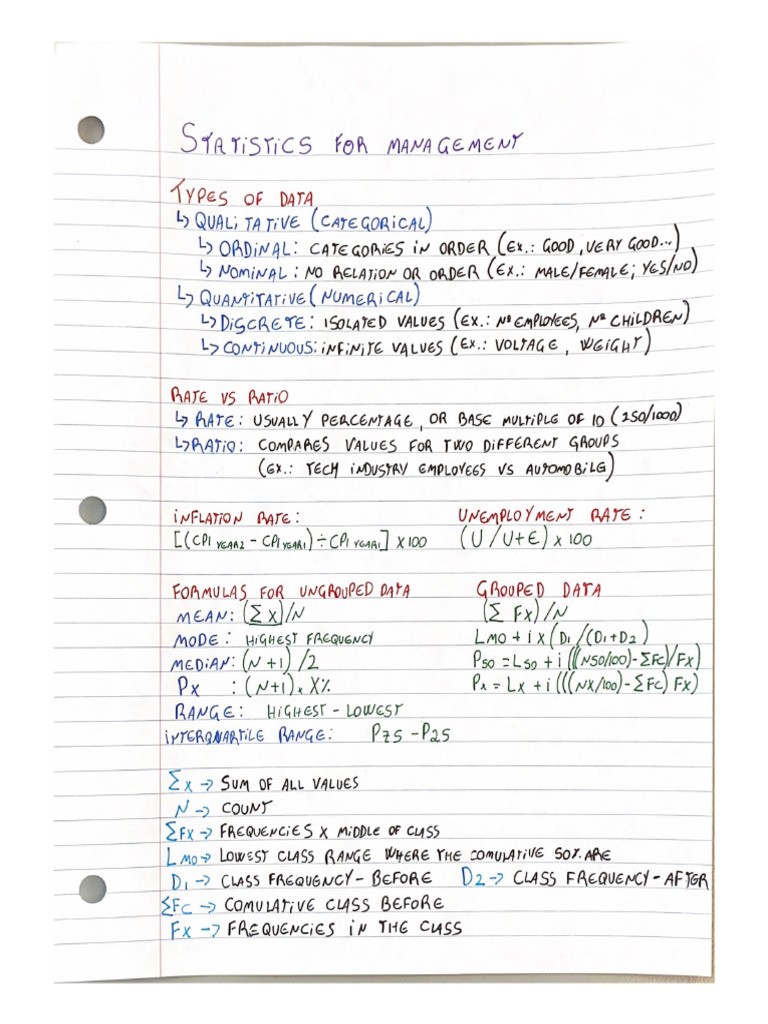 STATISTICS FOR MANAGEMENT
TYPES OF DATA
↳ QUALITATIVE (CATEGORICAL)
↳ ORDINAL: CATEGORIES IN ORDER (EX.: GOOD, VERY GOOD...)
↳ NOMINAL: NO RELATION OR ORDER (EX.: MALE/FEMALE; YES/NO)
↳ QUANTITATIVE (NUMERICAL)
↳ DISCRETE: ISOLATED VALUES (EX.: Nº EMPLOYEES, Nº CHILDREN)
↳ CONTINUOUS: INFINITE VALUES (EX.: VOLTAGE, WEIGHT)
RATE VS RATIO
↳ RATE: USUALLY PERCENTAGE, OR BASE MULTIPLE OF 10 (250/1000)
↳ RATIO: COMPARES VALUES FOR TWO DIFFERENT GROUPS
(EX.: TECH INDUSTRY EMPLOYEES VS AUTOMOBILE)
INFLATION RATE: UNEMPLOYMENT RATE:
[(CPI YEAR2 - CPI YEAR1) ÷ CPI YEAR1] x 100 (U / U+E) x 100
FORMULAS FOR UNGROUPED DATA GROUPED DATA
MEAN: (Σ X)/N (Σ FX)/N
MODE: HIGHEST FREQUENCY LMO + i x (D1 /(D1+D2)
MEDIAN: (N+1)/2 P50 = L50 + i ((N50/100) - ΣFC)/FX)
PX : (N+1) x X% PX = LX + i (((NX/100) - ΣFC) FX)
RANGE: HIGHEST - LOWEST
INTERQUARTILE RANGE: P75 - P25
ΣX → SUM OF ALL VALUES
N → COUNT
ΣFX → FREQUENCIES X MIDDLE OF CLASS
LMO → LOWEST CLASS RANGE WHERE THE COMULATIVE 50% ARE
D1 → CLASS FREQUENCY - BEFORE D2 → CLASS FREQUENCY - AFTER
ΣFC → COMULATIVE CLASS BEFORE
FX → FREQUENCIES IN THE CLASS